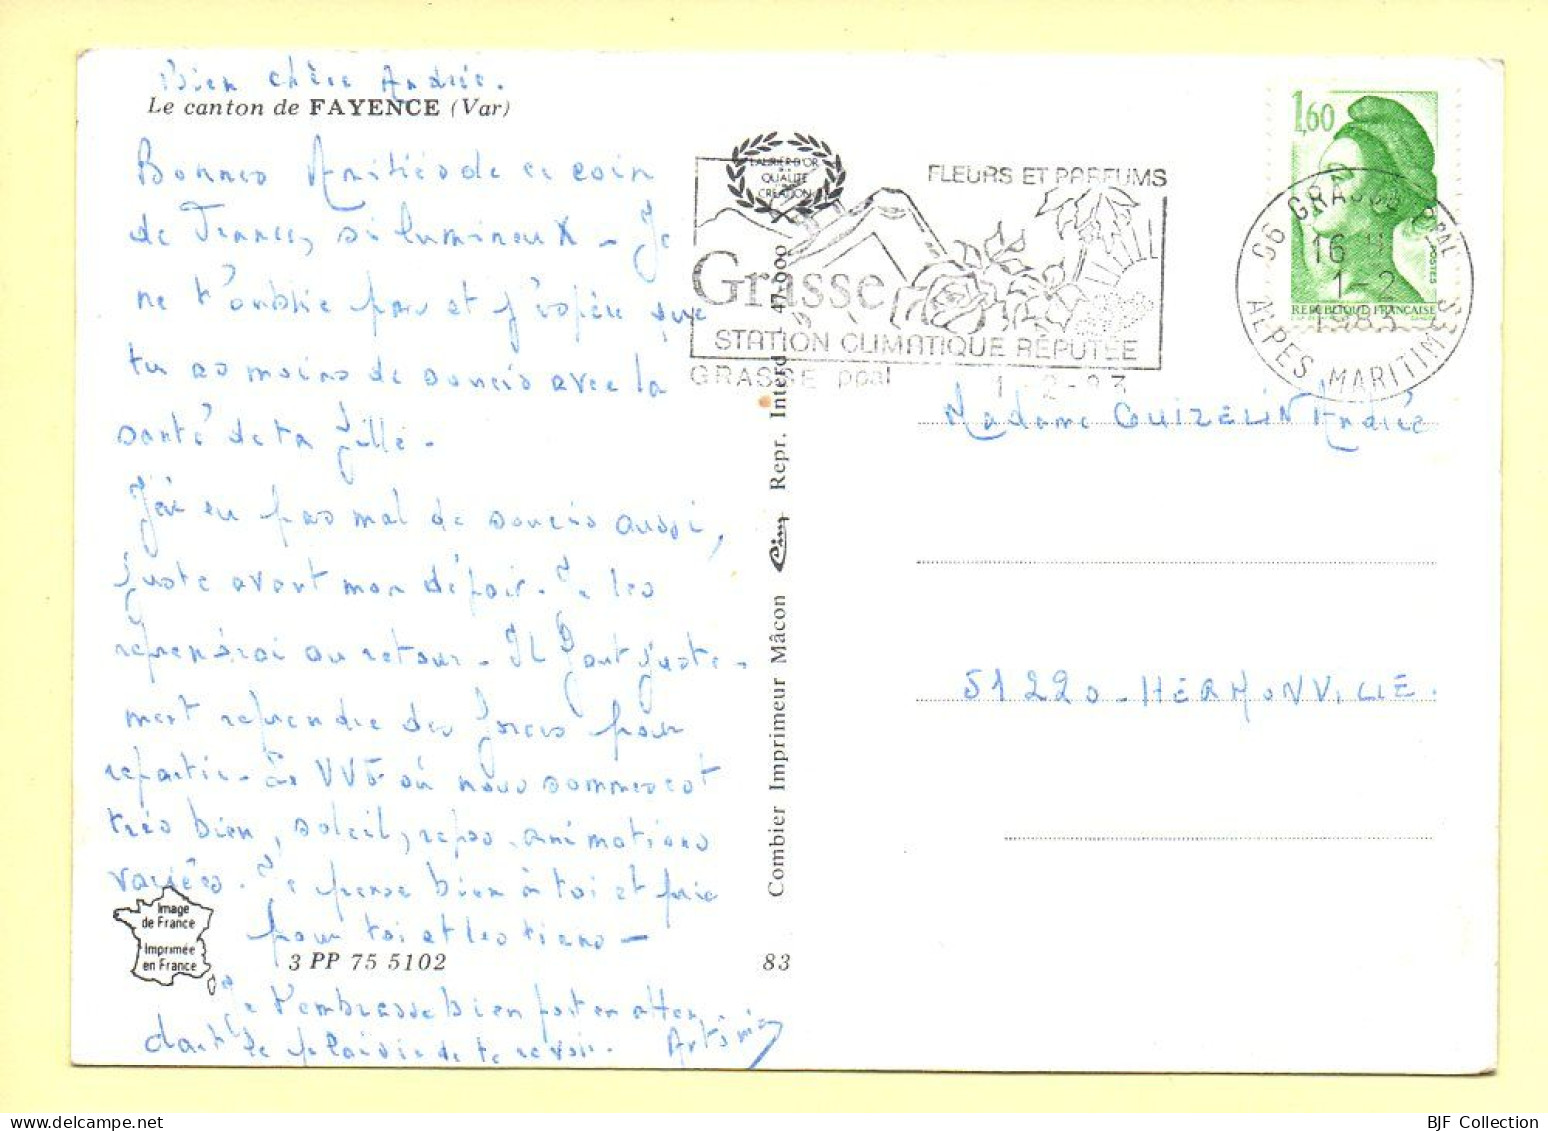 Bien chère Andrée.
Le canton de FAYENCE (Var)
Bonnes Amitiés de ce coin
de France, si lumineux - Je
ne t'oublie pas et j'espère que
tu as moins de soucis avec la
santé de ta fille -
J'ai eu pas mal de soucis aussi,
juste avant mon départ. Je les
reprendrai au retour - Il faut juste-
ment reprendre des forces pour
repartir - VVF où nous sommes est
très bien, soleil, repos, animations
variées. Je pense bien à toi et prie
pour toi et les tiens -
Image
de France
Imprimée
en France
3 PP 75 5102
83
Je t'embrasse bien fort en atten-
dant le plaisir de te revoir.
Combier Imprimeur Mâcon Cim Repr. Interd 47-000
LAURIER D'OR
QUALITÉ
CRÉATION
FLEURS ET PARFUMS
Grasse
STATION CLIMATIQUE RÉPUTÉE
GRASSE ppal 1-2-83
1,60
POSTES
REPUBLIQUE FRANÇAISE
06 GRASSE PPAL
16 H
1-2
1983
ALPES MARITIMES
Madame GUIZELIN Andrée
51220 - HERMONVILLE.
BJF Collection